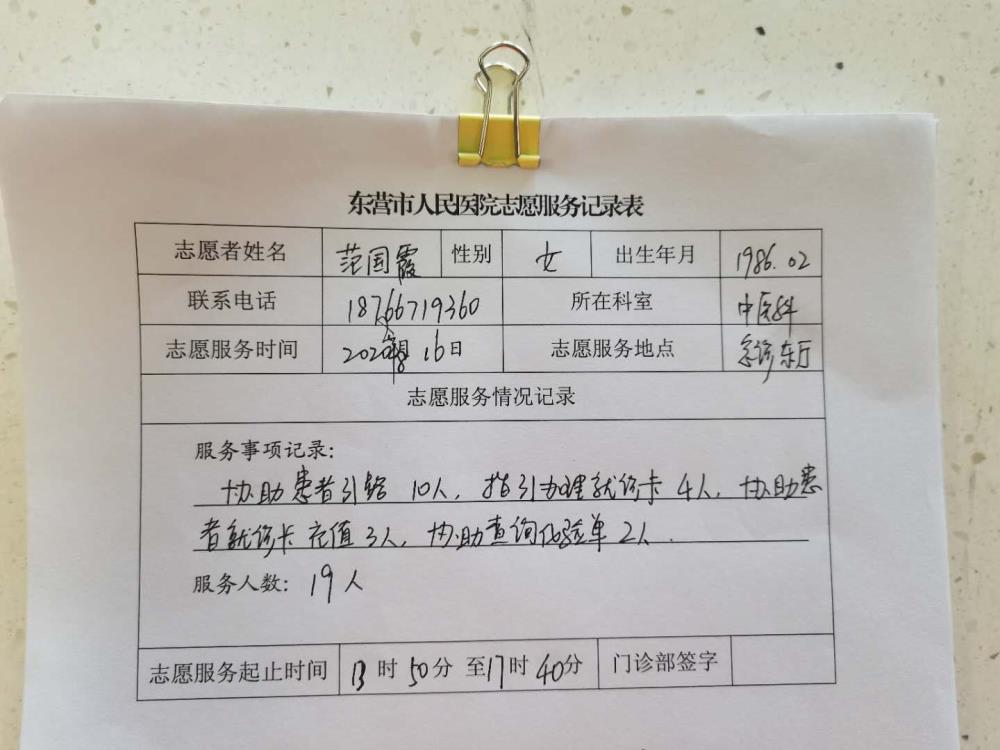 东营市人民医院志愿服务记录表
志愿者姓名 范国霞 性别 女 出生年月 1986.02
联系电话 18766719360 所在科室 中医科
志愿服务时间 2020年8月16日 志愿服务地点 急诊东厅
志愿服务情况记录
服务事项记录：
协助患者引路 10人，指引办理就诊卡 4人，协助患
者就诊卡充值 3人，协助查询化验单 2人．
服务人数： 19人
志愿服务起止时间 13时50分至17时40分 门诊部签字